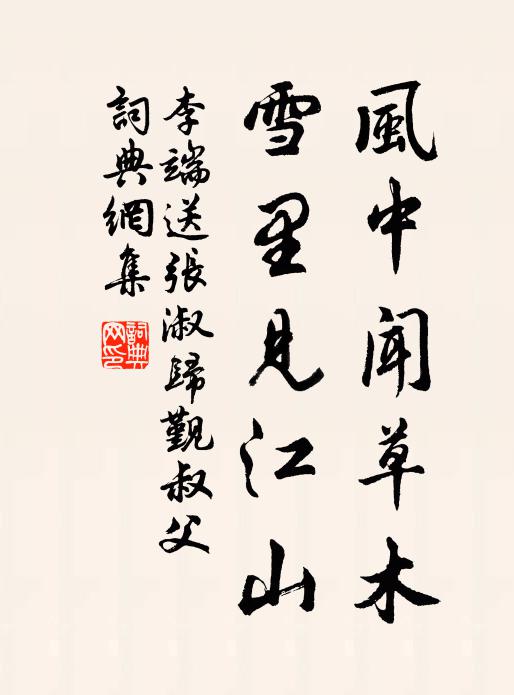 風中聞草木
雪里見江山
李端送張淑歸觀叔父
詞典網集
詞典
网印